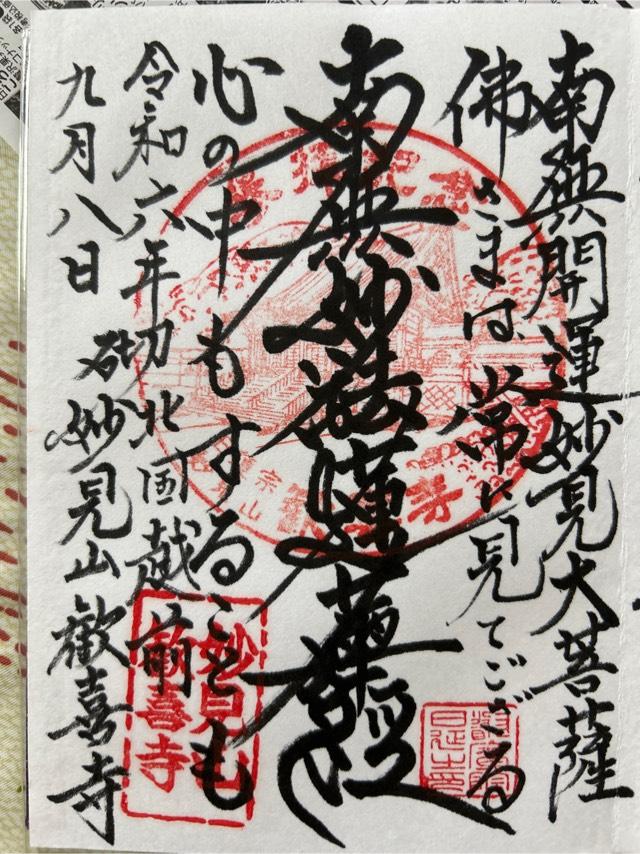 南無開運妙見大菩薩
佛さまは常に見てござる
南無妙法蓮華經
心の中もすることも
令和六年 北国越前
九月八日 妙見山歓喜寺
妙見山
歓喜寺